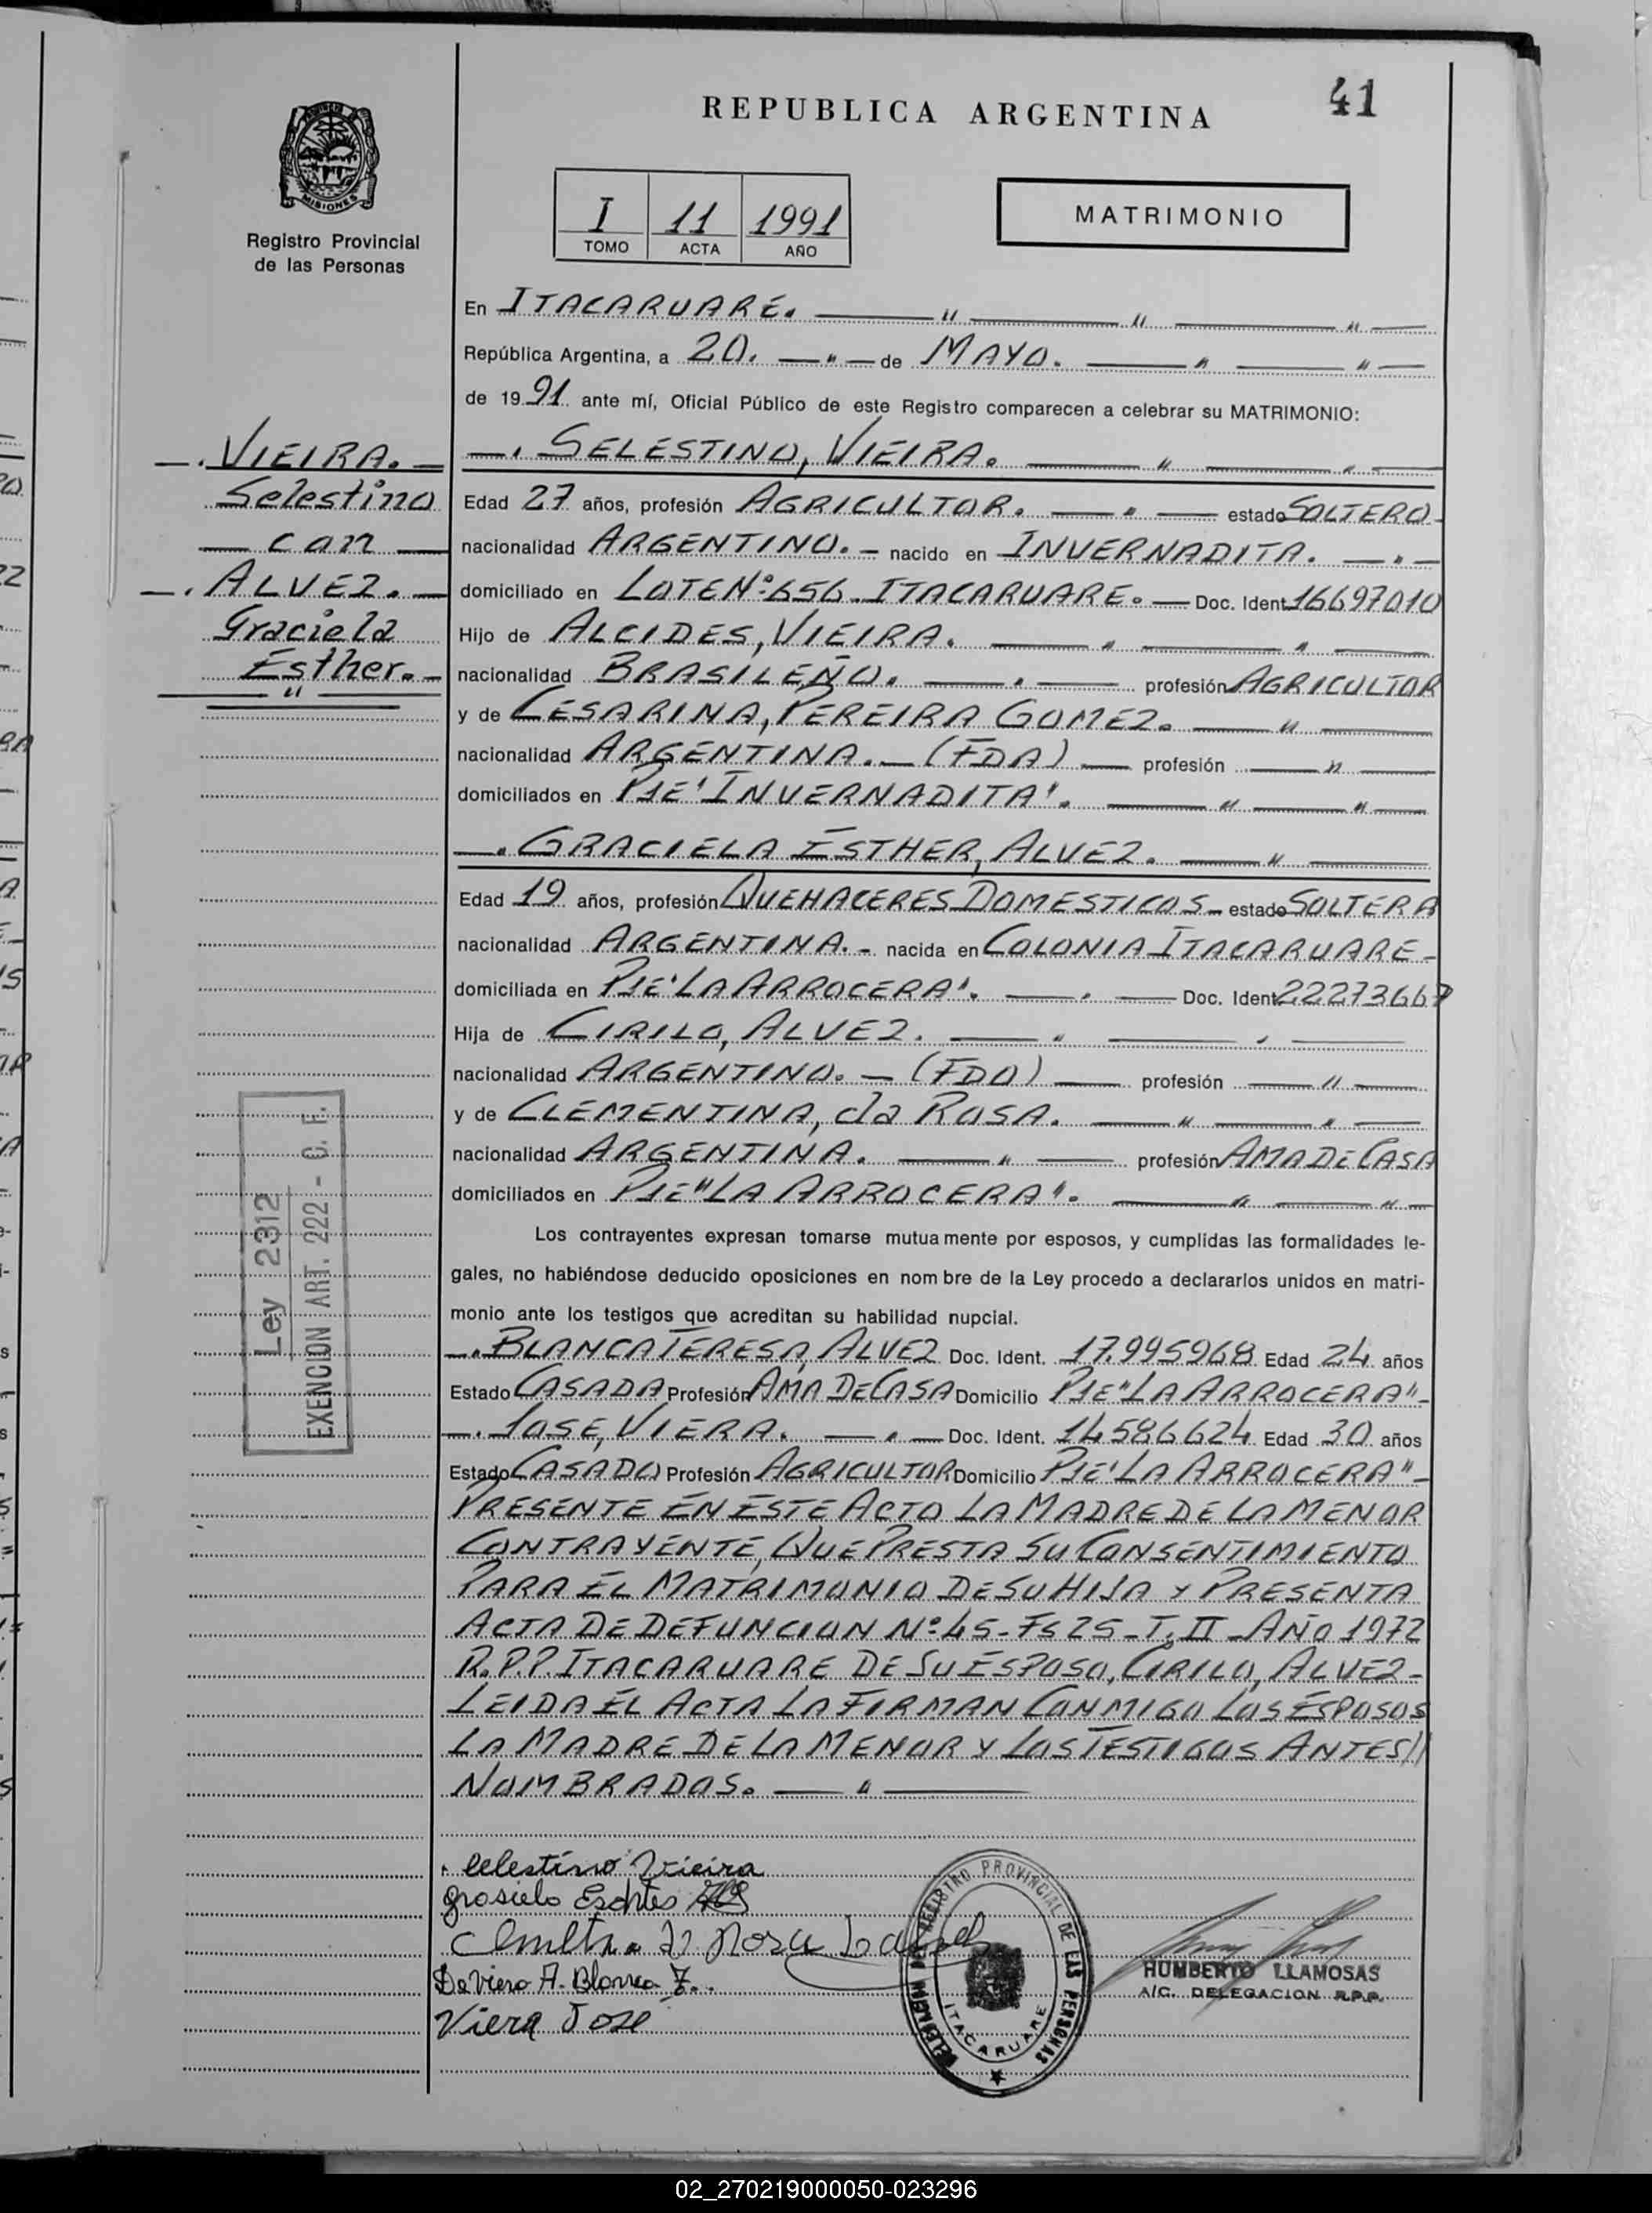 41
REPUBLICA ARGENTINA
MISIONES
Registro Provincial
de las Personas
I 11 1991
TOMO ACTA AÑO
MATRIMONIO
En ITACARUARÉ. — " — " — " —
República Argentina, a 20. — " — de MAYO. — " — " —
de 19 91 ante mí, Oficial Público de este Registro comparecen a celebrar su MATRIMONIO:
—. VIEIRA. —
Selestino
— con —
—. ALVEZ. —
Graciela
Esther. —
— " —
—. SELESTINO, VIEIRA. — " — " —
Edad 27 años, profesión AGRICULTOR. — " — estado SOLTERO -
nacionalidad ARGENTINO. - nacido en INVERNADITA. — " —
domiciliado en LOTE Nº 656 - ITACARUARE. — Doc. Ident. 16697010
Hijo de ALCIDES, VIEIRA. — " — " —
nacionalidad BRASILEÑO. — " — profesión AGRICULTOR
y de CESARINA, PEREIRA GOMEZ. — " —
nacionalidad ARGENTINA. — (FDA) — profesión — " —
domiciliados en PJE "INVERNADITA". — " — " —
—. GRACIELA ESTHER, ALVEZ. — " —
Edad 19 años, profesión QUEHACERES DOMESTICOS - estado SOLTERA
nacionalidad ARGENTINA. - nacida en COLONIA ITACARUARE -
domiciliada en PJE "LA ARROCERA". — " — Doc. Ident. 22273667
Hija de CIRILO, ALVEZ. — " — " —
nacionalidad ARGENTINO. — (FDO) — profesión — " —
y de CLEMENTINA, da ROSA. — " — " —
nacionalidad ARGENTINA. — " — profesión AMA DE CASA
domiciliados en PJE "LA ARROCERA". — " — " —
Ley 2312
EXENCION ART. 222 - C. F.
Los contrayentes expresan tomarse mutuamente por esposos, y cumplidas las formalidades le-
gales, no habiéndose deducido oposiciones en nombre de la Ley procedo a declararlos unidos en matri-
monio ante los testigos que acreditan su habilidad nupcial.
—. BLANCA TERESA, ALVEZ Doc. Ident. 17.995968 Edad 24 años
Estado CASADA Profesión AMA DE CASA Domicilio PJE "LA ARROCERA" -
—. JOSE, VIERA. — " — Doc. Ident. 14586624 Edad 30 años
Estado CASADO Profesión AGRICULTOR Domicilio PJE "LA ARROCERA" -
PRESENTE EN ESTE ACTO LA MADRE DE LA MENOR
CONTRAYENTE, QUE PRESTA SU CONSENTIMIENTO
PARA EL MATRIMONIO DE SU HIJA Y PRESENTA
ACTA DE DEFUNCION Nº 45 - Fs 25 - T. II - AÑO 1972
R.P.P. ITACARUARE DE SU ESPOSO, CIRILO, ALVEZ -
LEIDA EL ACTA LA FIRMAN CONMIGO LOS ESPOSOS
LA MADRE DE LA MENOR Y LOS TESTIGOS ANTES //
NOMBRADOS. — " —
Celestino Vieira
De Viera A. Blanca T.
Viera Jose
DELEGACION DEL REGISTRO PROVINCIAL DE LAS PERSONAS
ITACARUARE
HUMBERTO LLAMOSAS
A/C. DELEGACION R.P.P.
02_270219000050-023296